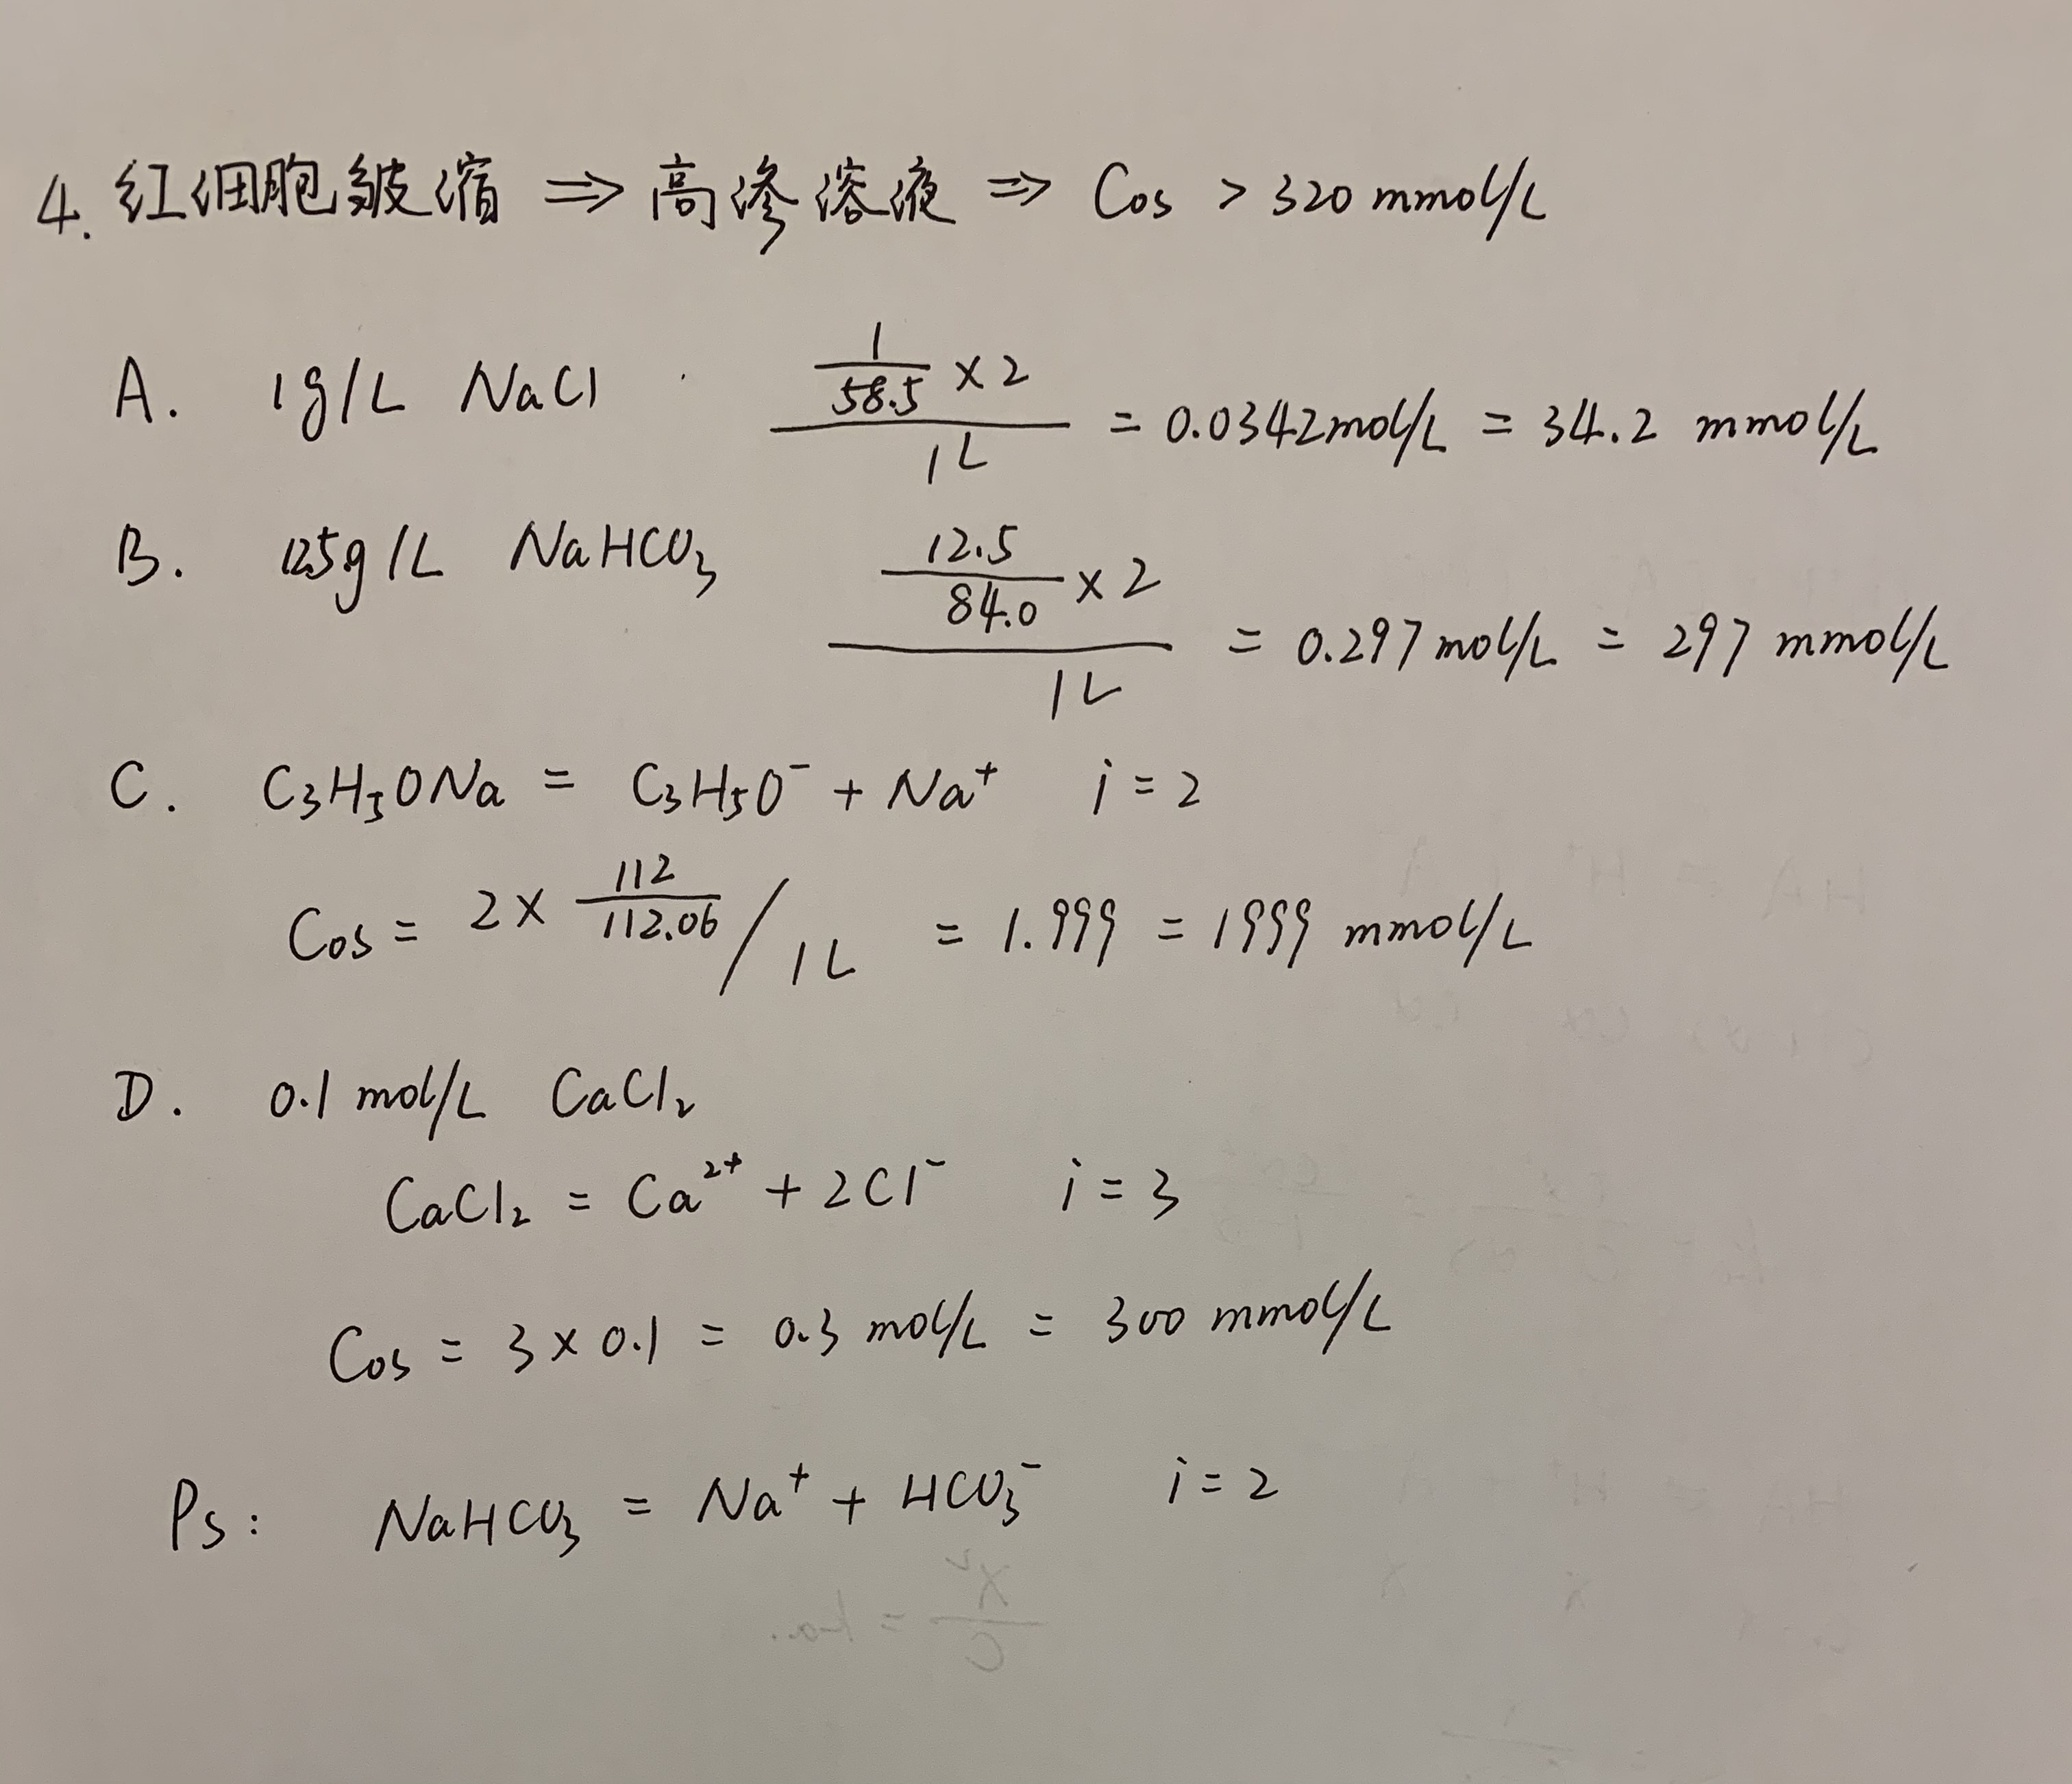 4. 红细胞皱缩 ⇒ 高渗溶液 ⇒ Cos > 320 mmol/L
A. 1g/L NaCl (1/58.5 × 2)/1L = 0.0342mol/L = 34.2 mmol/L
B. 12.5g/L NaHCO₃ (12.5/84.0 × 2)/1L = 0.297mol/L = 297 mmol/L
C. C₃H₅ONa = C₃H₅O⁻ + Na⁺ i = 2
Cos = 2 × 112/112.06 / 1L = 1.999 = 1999 mmol/L
D. 0.1 mol/L CaCl₂
CaCl₂ = Ca²⁺ + 2Cl⁻ i = 3
Cos = 3 × 0.1 = 0.3 mol/L = 300 mmol/L
Ps: NaHCO₃ = Na⁺ + HCO₃⁻ i = 2